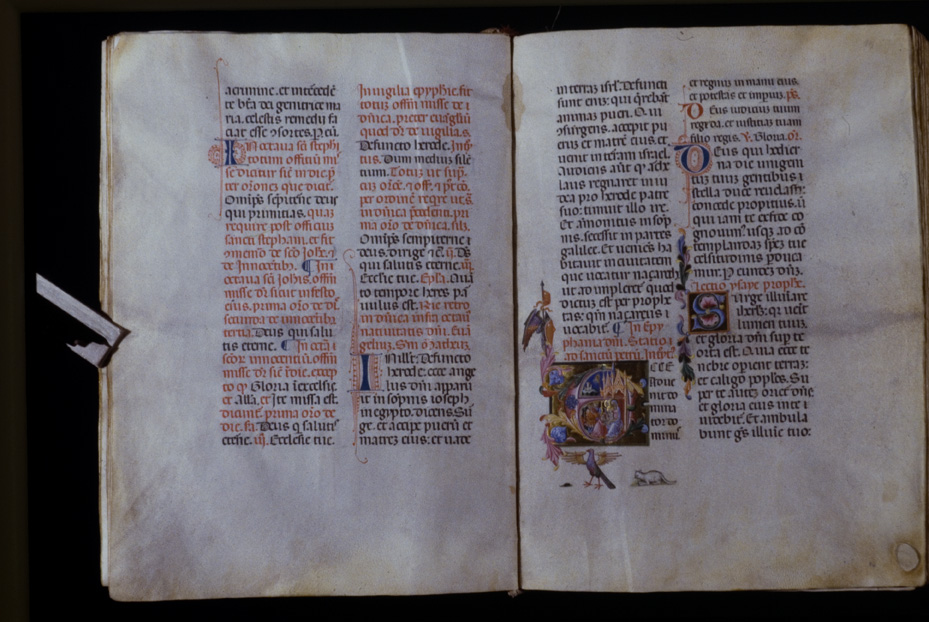 acrimine. et intercedē
te btā dei genitrice ma
ria. celestis remedii fa
ciat esse ɔsortes. P eū.
In octava sci stephi
totum officiū mi
se dicatur sic̄ in die p̄
ter orōnes que dicit̄.
Omīps sēpiterne deus
qui primitias. quas
require post officiuȝ
sancti stephani. et fit
ɔmemō de sc̄o iohe. ⁊
de Innocētib. ¶ In
octava sci iohis. offm̄
misse dr̄ sicut in festo
eius. prima orō de
scūda de innocētib
tertia. Deus qui salu
tis eterne. ¶ In octa ī
scōr innocētiū. offm̄
misse dr̄ sic̄ ī die. excep
to ꝙ Gloria in excelsis.
et alla. et Ite missa est.
dicūt. prima orō de
die. Deus q salutis
eterne. iij. Ecclesie tue.
In vigilia epyphie. fit
totuȝ offm̄ misse de
dnīca. preter euāgliū
quod dr̄ de vigilia.
Defuncto herode. Intr̄
tus. Dum medium silē
tium. Totum ut sup̄.
cū orōe. ⁊ off. ⁊ p̄t cō.
per ordinē reqre
in dnīca p̄cedenti. pri
ma orō de dnīca.
Omīps sempiterne
deus. dirige ⁊c. ij. Ds
qui salutis eterne. iij.
Ecclie tue. Ep̄la. Quā
to tempore heres pa
vulus est. Req retro
in dnīca infra octaū
nativitatis dnī. Euā
gelium. Sm̄ matheū.
In illo t̄. Defuncto
herode. ecce ange
lus dnī apparu
it in sopnis ioseph
in egypto. dicens. Su
ge. et accipe puerū et
matrē eius. et vade
in terrā isrl. Defuncti
sunt enī. qui q̄rebāt
animaȝ pueri. Qui
ɔsurgens. accepit pu
erū et matrē eius. et
venit in terram israel.
Audiens autē ꝙ arche
laus regnaret in iu
dea pro herode patre
suo. timuit illo ire.
Et āmonitus in sop
nis. secessit in partes
galilee. Et veniēs ha
bitavit in civitatem
que vocatur naçareth.
ut adimpleret̄ quod
dictuȝ est per prophe
tas. qm̄ naçareus
vocabit̄. ¶ In Epy
phania dnī. Statio
ad sanctū petrū. Intr̄.
Ecce
advenit
et regnū in manu eius.
et potestas et imperiuȝ. ps.
Deus iudiciuȝ tuum
regi da. et iustitiaȝ tuam
filio regis. V. Gloria. or.
Deus qui hodier
na die unigeni
tuȝ tuuȝ gentibus
stella duce revelasti.
concede propitius. ut
qui iam te ex fide co
gnovimꝰ. usqȝ ad cō
templandaȝ speȝ tue
celsitudinis perduca
mur. P eundē dnȝ.
Lectio ysaye prophe.
Surge illumīare
ihrlȝ. qr̄ venit
lumen tuuȝ.
et gloria dnī sup̄ te
orta est. Quia ecce te
nebre operient terraȝ.
et caligo populos. Su
per te autē orietꝛ dns.
et gloria eius in te
videbit̄. Et ambula
bunt gēs